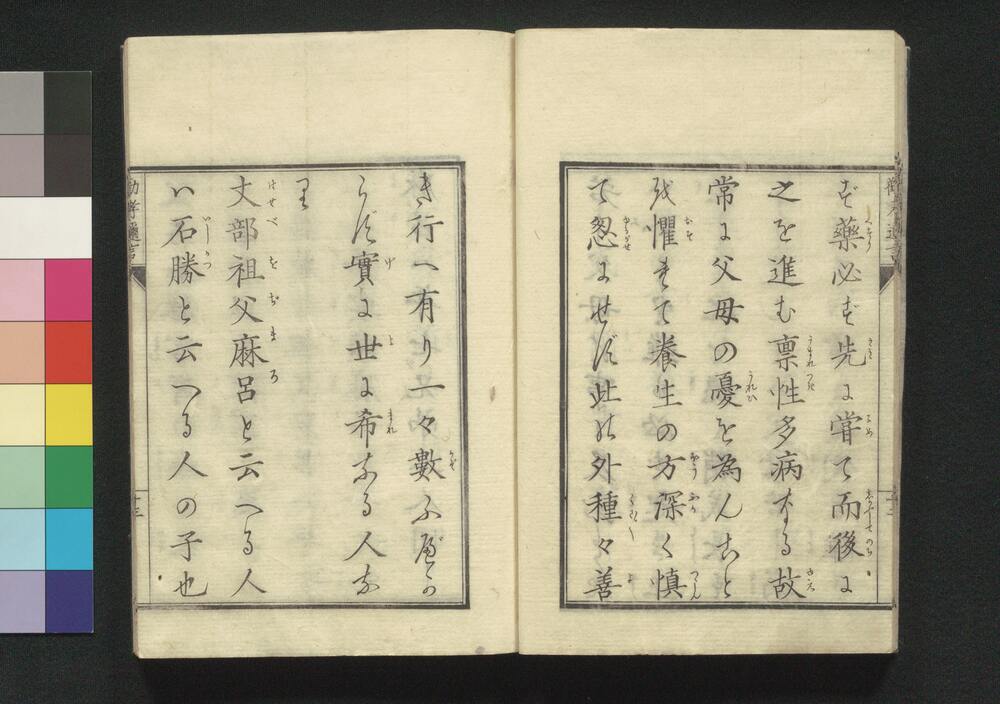 ず藥必ず先に甞て而後に
之を進む禀性多病なる故
常に父母の憂を為んこと
を懼れて養生の方深く慎
て怱にせず此の外種々善
き行へ有り一々數ふべか
らず實に世に希なる人な
り
丈部祖父麻呂と云へる人
ハ石勝と云へる人の子也
勸孝邇言
十三